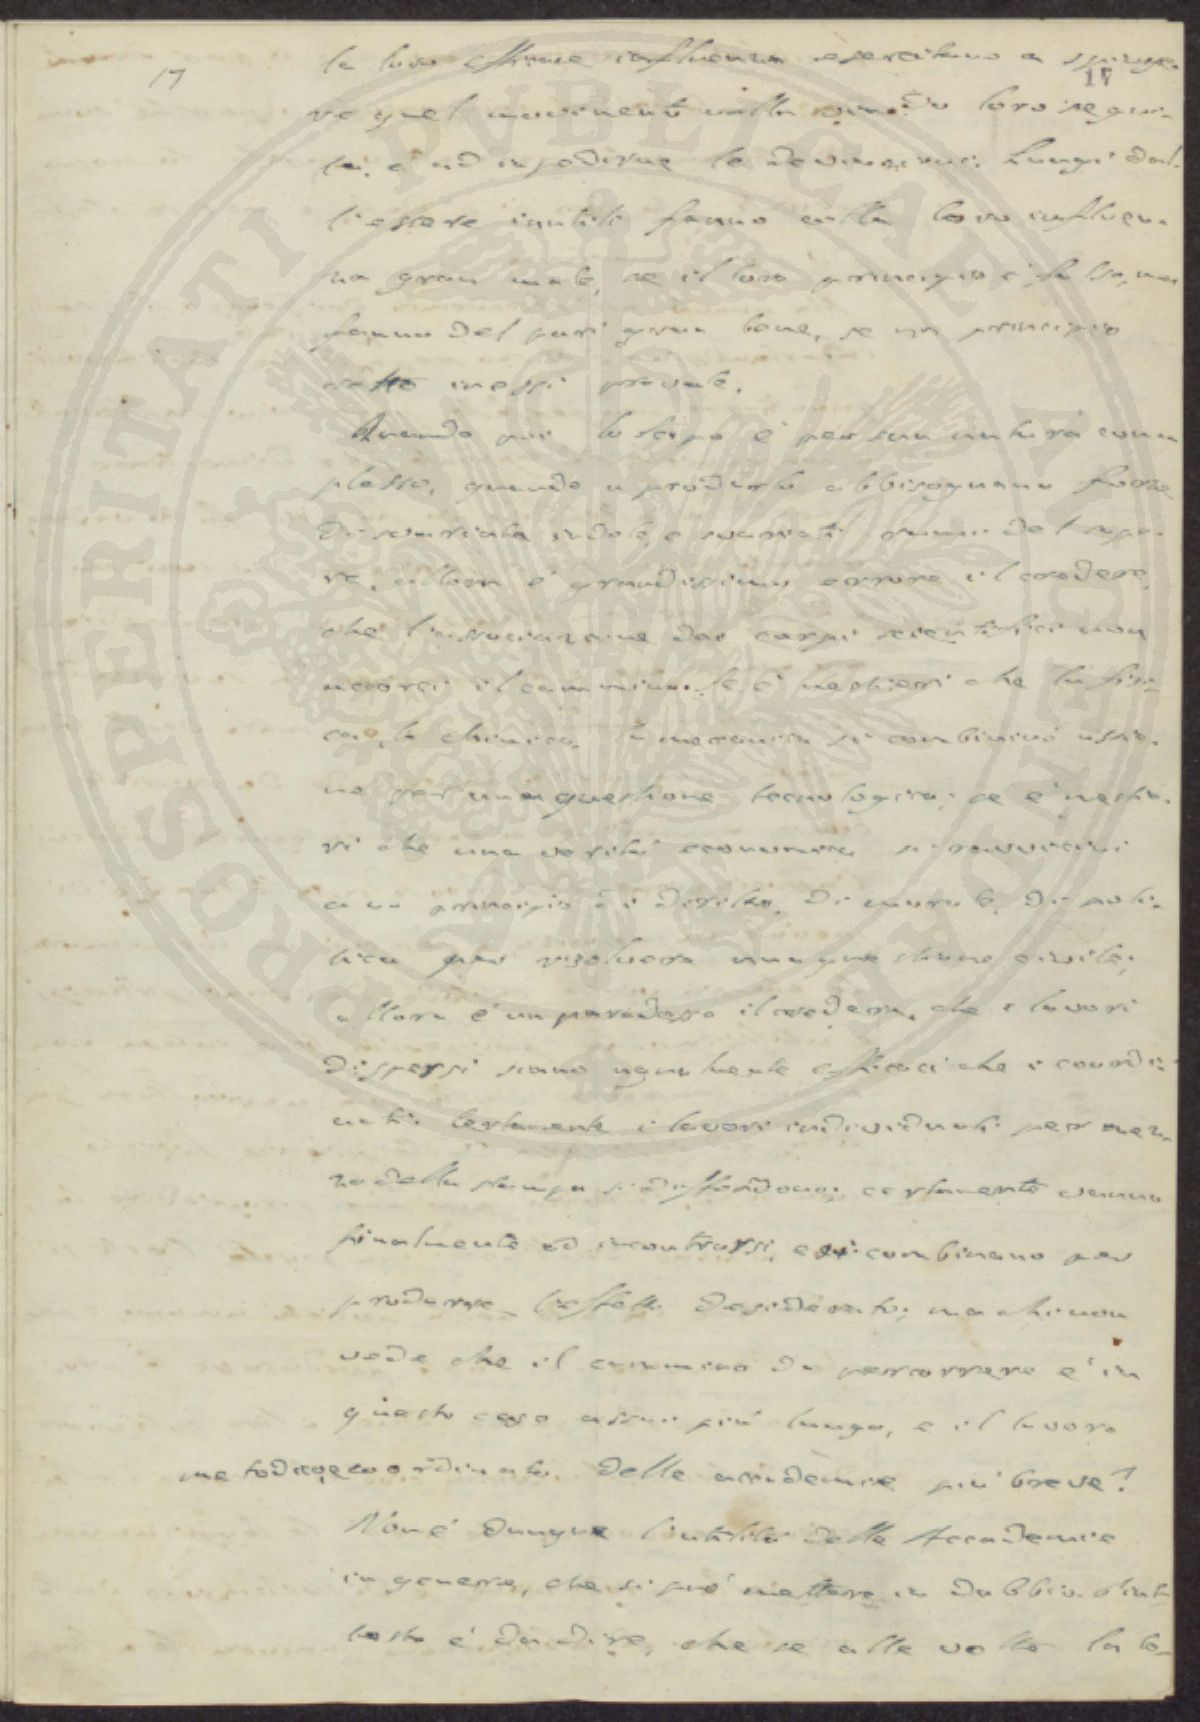 17
la loro efficace influenza esercitano a spinge-
17
re quel movimento nella via da loro segui-
ta, e ad impedirne le deviazioni. Lungi dal-
l'essere inutili fanno colla loro influen-
za gran male, se il loro principio è falso, ma
fanno del pari gran bene, se un principio
retto in essi prevale.
Quando poi lo scopo è per sua natura com-
plesso, quando a produrlo abbisognano forze
di svariata indole, e svariati rami del sape-
re, allora è grandissimo errore il credere,
che l'associazione dei corpi scientifici non
accorci il cammino. Se è mestieri che la fisi-
ca, la chimica, la meccanica si combinino assie-
me per una questione tecnologica; se è mestie-
ri che una verità economica si ravvicini
a un principio di diritto, di morale, di poli-
tica per risolvere una questione civile;
allora è un paradosso il credere, che i lavori
dispersi siano ugualmente efficaci che i coordi-
nati. Certamente i lavori individuali per mez-
zo della stampa si diffondono; certamente vanno
finalmente ad incontrarsi, e si combinano per
produrre l'effetto desiderato; ma chi non
vede che il cammino da percorrere è in
questo caso assai più lungo, e il lavoro
metodico e coordinato delle accademie più breve?
Non è dunque l'utilità delle Accademie
in genere, che si può mettere in dubbio. Piut-
tosto è da dire, che se alle volte la lo-
PROSPERITATI PUBLICAE AUGENDAE